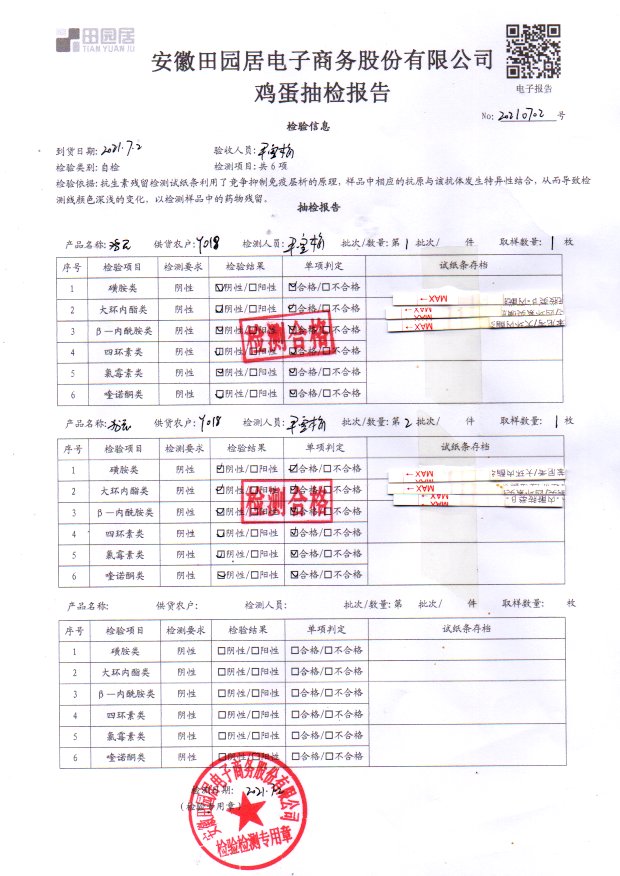 田园居
TIAN YUAN JU
安徽田园居电子商务股份有限公司
鸡蛋抽检报告
电子报告
No: 20210702 号
检验信息
到货日期: 2021.7.2 验收人员:
检验类别: 自检 检测项目: 共6项
检验依据: 抗生素残留检测试纸条利用了竞争抑制免疫层析的原理, 样品中相应的抗原与该抗体发生特异性结合, 从而导致检
测线颜色深浅的变化, 以检测样品中的药物残留。
抽检报告
产品名称: 供货农户: Y018 检测人员: 批次/数量: 第 1 批次/ 件 取样数量: 1 枚
序号 检验项目 检测要求 检验结果 单项判定 试纸条存档
1 磺胺类 阴性 ☑阴性/☐阳性 ☑合格/☐不合格
2 大环内酯类 阴性 ☑阴性/☐阳性 ☑合格/☐不合格
3 β—内酰胺类 阴性 ☑阴性/☐阳性 ☑合格/☐不合格
4 四环素类 阴性 ☑阴性/☐阳性 ☑合格/☐不合格
5 氯霉素类 阴性 ☑阴性/☐阳性 ☑合格/☐不合格
6 喹诺酮类 阴性 ☑阴性/☐阳性 ☑合格/☐不合格
MAX
MAX
检测合格
产品名称: 供货农户: Y018 检测人员: 批次/数量: 第 2 批次/ 件 取样数量: 1 枚
序号 检验项目 检测要求 检验结果 单项判定 试纸条存档
1 磺胺类 阴性 ☑阴性/☐阳性 ☑合格/☐不合格
2 大环内酯类 阴性 ☑阴性/☐阳性 ☑合格/☐不合格
3 β—内酰胺类 阴性 ☑阴性/☐阳性 ☑合格/☐不合格
4 四环素类 阴性 ☑阴性/☐阳性 ☑合格/☐不合格
5 氯霉素类 阴性 ☑阴性/☐阳性 ☑合格/☐不合格
6 喹诺酮类 阴性 ☑阴性/☐阳性 ☑合格/☐不合格
MAX
MAX
MAX
检测合格
产品名称: 供货农户: 检测人员: 批次/数量: 第 批次/ 件 取样数量: 枚
序号 检验项目 检测要求 检验结果 单项判定 试纸条存档
1 磺胺类 阴性 ☐阴性/☐阳性 ☐合格/☐不合格
2 大环内酯类 阴性 ☐阴性/☐阳性 ☐合格/☐不合格
3 β—内酰胺类 阴性 ☐阴性/☐阳性 ☐合格/☐不合格
4 四环素类 阴性 ☐阴性/☐阳性 ☐合格/☐不合格
5 氯霉素类 阴性 ☐阴性/☐阳性 ☐合格/☐不合格
6 喹诺酮类 阴性 ☐阴性/☐阳性 ☐合格/☐不合格
检测日期: 2021.7.2
(检验专用章)
安徽田园居电子商务股份有限公司
检验检测专用章